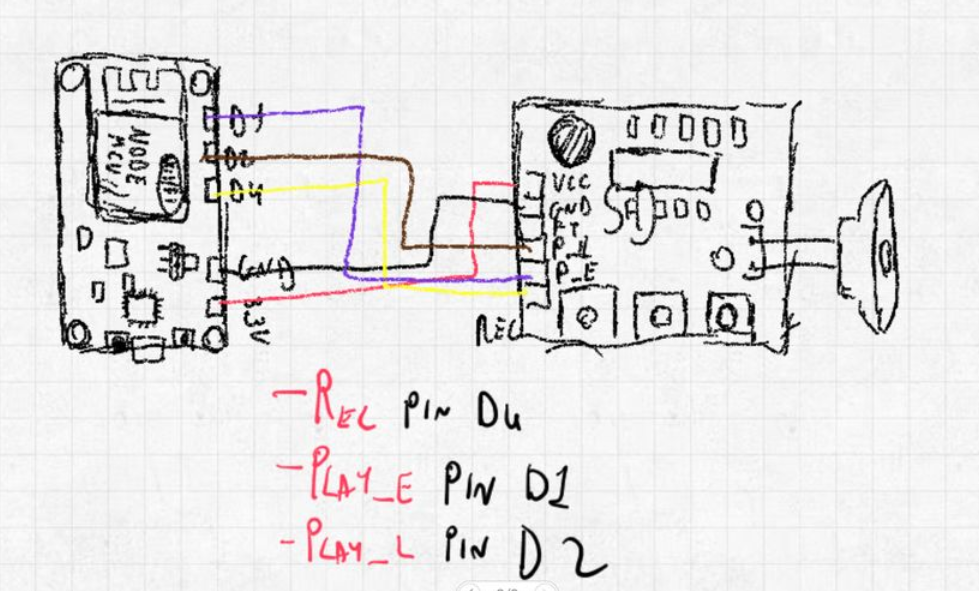 NODE
MCU
D1
D2
D4
GND
3.3V
VCC
GND
FT
P_L
P_E
REC
- REC PIN D4
- PLAY_E PIN D1
- PLAY_L PIN D2